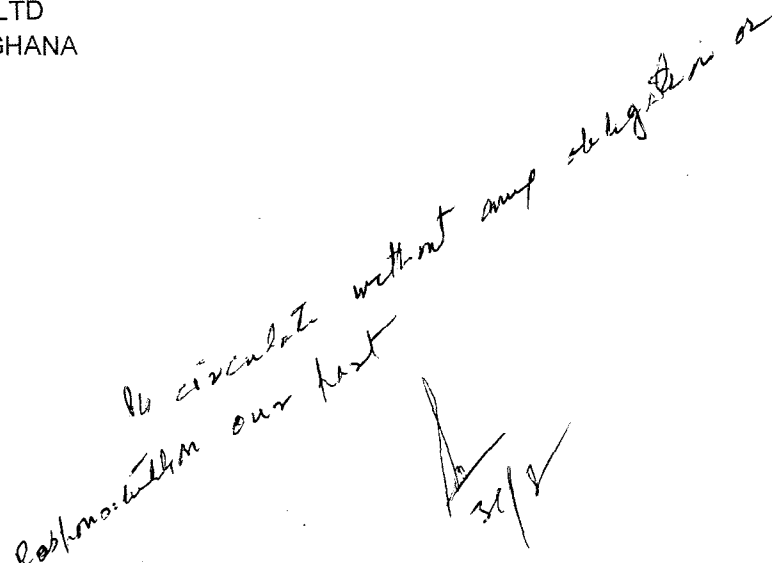 LTD
GHANA
Pls circulate without any obligation or
Responsibility on our part
31/8